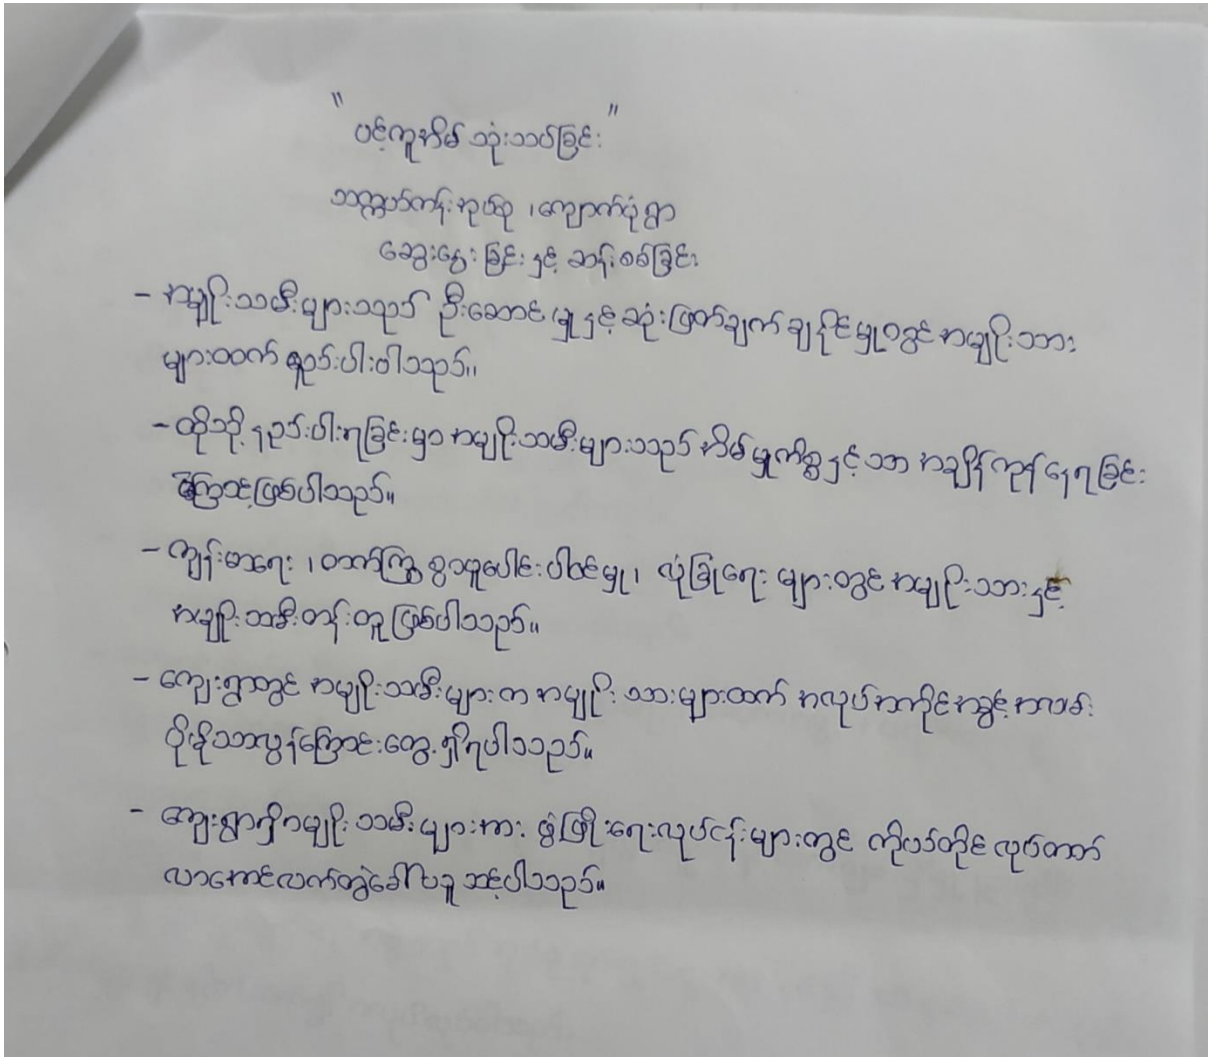 " ပင့်ကူအိမ် သုံးသပ်ခြင်း "
သက္ကယ်ကန်းအုပ်စု ၊ ကျောက်ပုံရွာ
ဆွေးနွေးခြင်းနှင့် ဆန်းစစ်ခြင်း
- အမျိုးသမီးများသည် ဦးဆောင်မှုနှင့်ဆုံးဖြတ်ချက်ချနိုင်မှုတွင် အမျိုးသား
များထက် နည်းပါးပါသည်။
- ထိုသို့ နည်းပါးရခြင်းမှာ အမျိုးသမီးများသည် အိမ်မှုကိစ္စနှင့်သာ အချိန်ကုန်နေရခြင်း
ကြောင့်ဖြစ်ပါသည်။
- ကျန်းမာရေး ၊ တက်ကြွစွာပူးပေါင်းပါဝင်မှု ၊ လုံခြုံရေး များတွင် အမျိုးသားနှင့်
အမျိုးသမီးတန်းတူဖြစ်ပါသည်။
- ကျေးရွာတွင် အမျိုးသမီးများက အမျိုးသားများထက် အလုပ်အကိုင်အခွင့်အလမ်း
ပိုမိုသာလွန်ကြောင်းတွေ့ရှိရပါသည်။
- ကျေးရွာရှိအမျိုးသမီးများအား ဖွံ့ဖြိုးရေးလုပ်ငန်းများတွင် ကိုယ်တိုင်လုပ်တတ်
လာအောင်လက်တွဲခေါ်ယူသင့်ပါသည်။